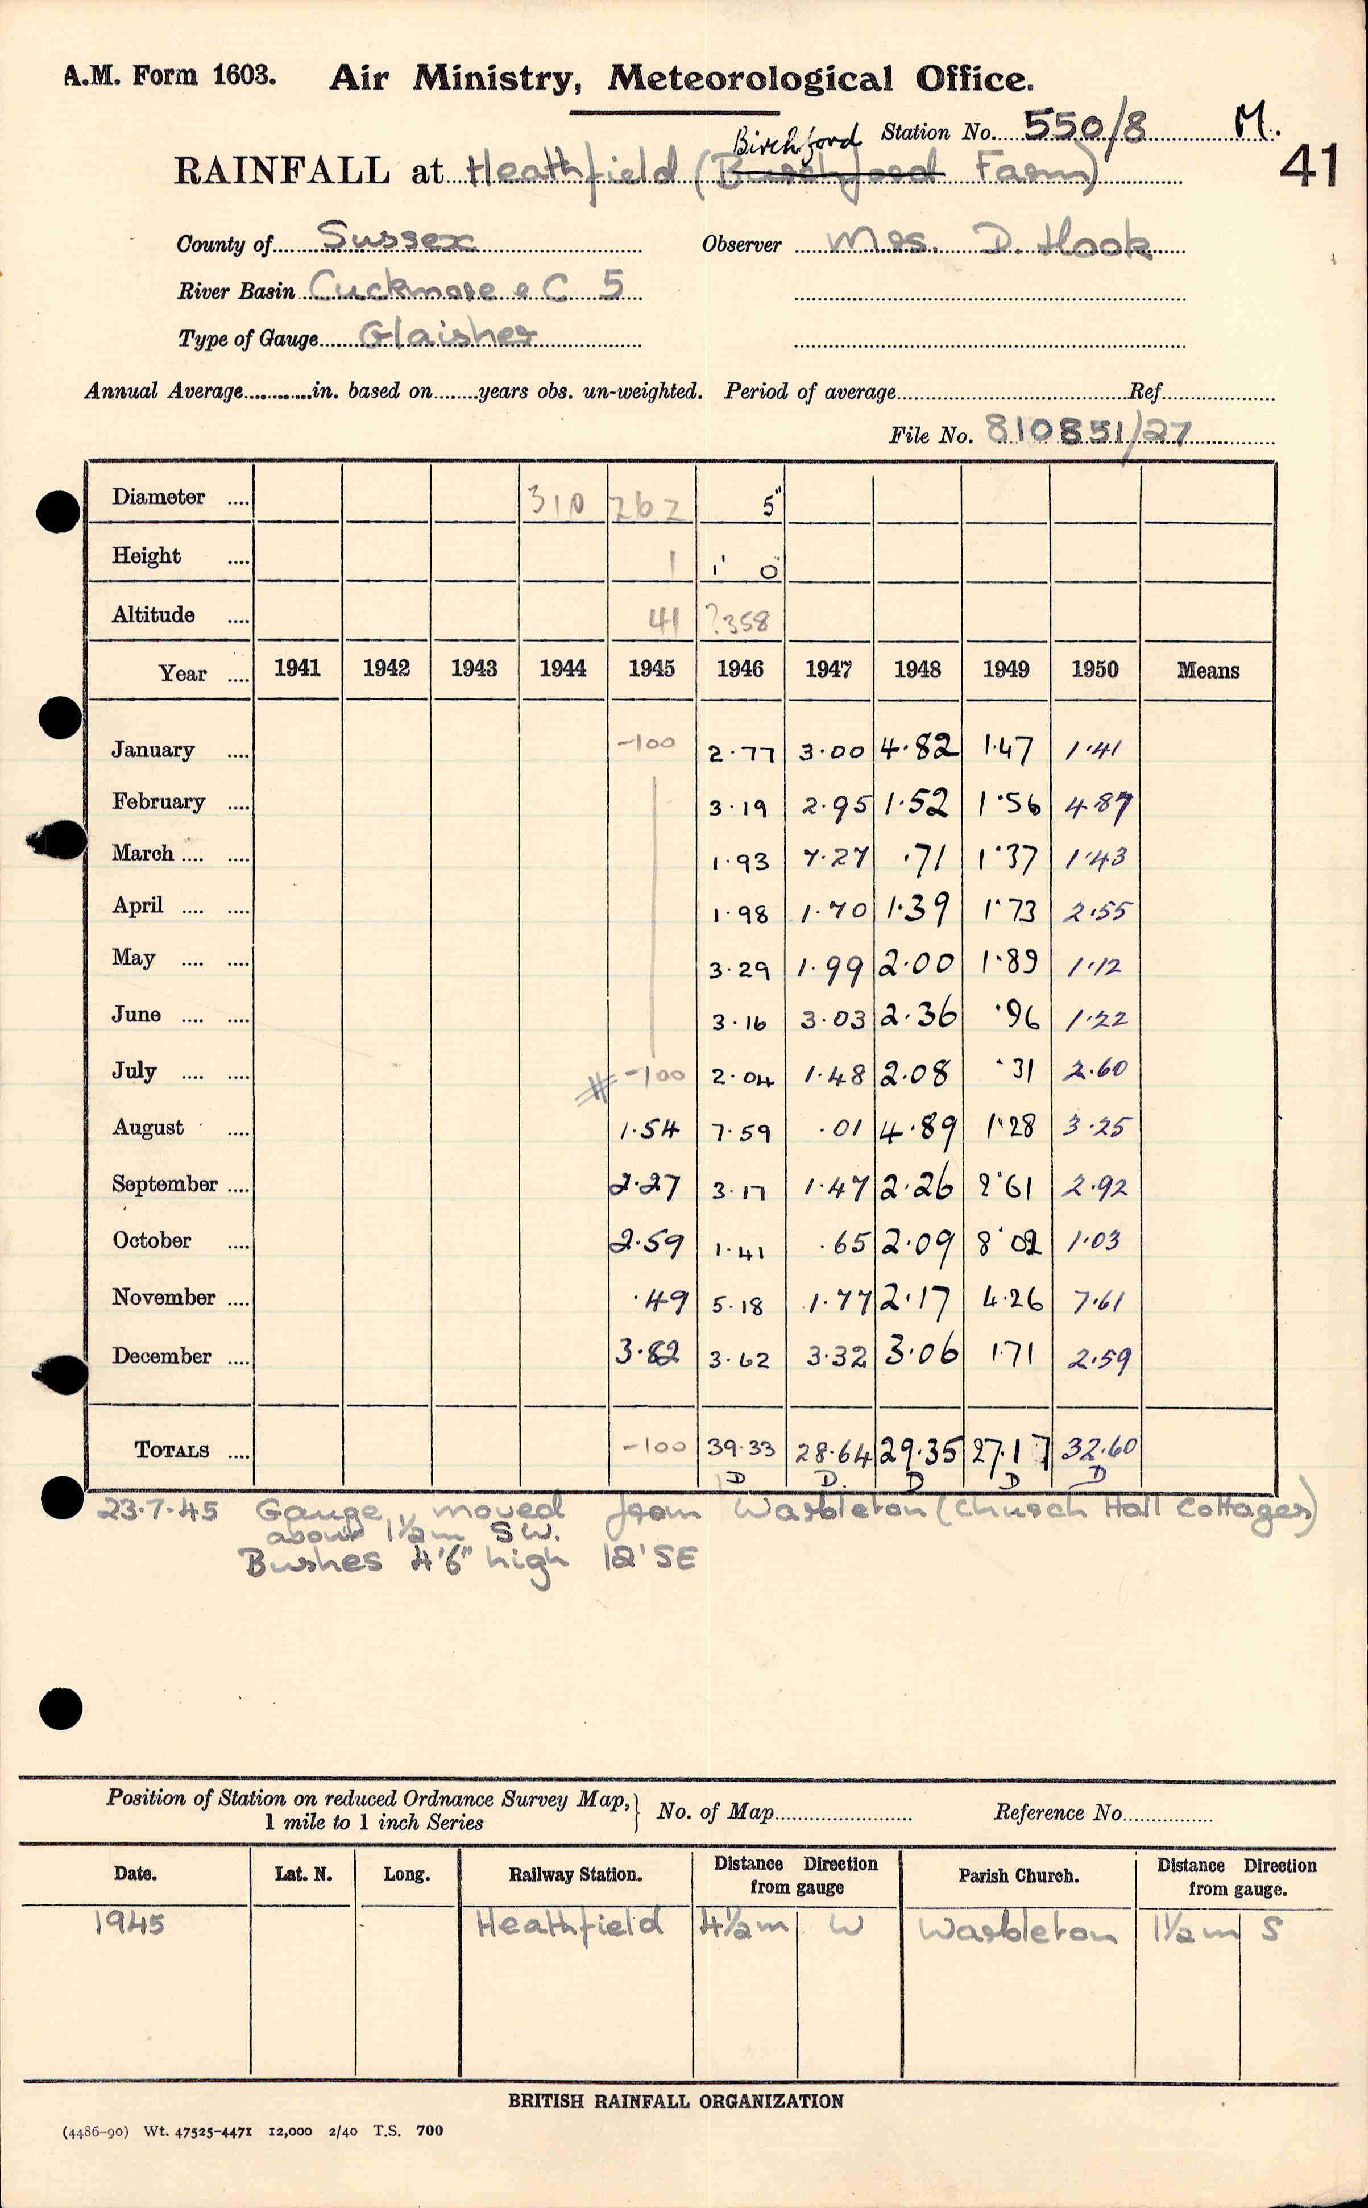 A.M. Form 1603. Air Ministry, Meteorological Office.
Station No. 550/8 M.
41
Birchford
RAINFALL at Heathfield (Burchford Farm)
County of Sussex Observer Mrs. D. Hook
River Basin Cuckmere & C 5
Type of Gauge Glaisher
Annual Average in. based on years obs. un-weighted. Period of average Ref
File No. 810851/27
Diameter .... 310 262 5"
Height .... 1 1' 0"
Altitude .... 41 ?358
Year .... 1941 1942 1943 1944 1945 1946 1947 1948 1949 1950 Means
January .... -100 2.77 3.00 4.82 1.47 1.41
February .... 3.19 2.95 1.52 1.56 4.87
March .... .... 1.93 7.27 .71 1.37 1.43
April .... .... 1.98 1.70 1.39 1.73 2.55
May .... .... 3.29 1.99 2.00 1.89 1.12
June .... .... 3.16 3.03 2.36 .96 1.22
July .... .... # -100 2.04 1.48 2.08 .31 2.60
August .... 1.54 7.59 .01 4.89 1.28 3.25
September .... 2.27 3.17 1.47 2.26 2.61 2.92
October .... 2.59 1.41 .65 2.09 8.02 1.03
November .... .49 5.18 1.77 2.17 4.26 7.61
December .... 3.82 3.62 3.32 3.06 1.71 2.59
TOTALS .... -100 39.33 28.64 29.35 27.17 32.60
D D. D D D
23.7.45 Gauge moved from Warbleton (Church Hall Cottages)
about 1½m SW.
Bushes 4'6" high 12' SE
Position of Station on reduced Ordnance Survey Map,} No. of Map Reference No.
1 mile to 1 inch Series
Date. Lat. N. Long. Railway Station. Distance Direction from gauge Parish Church. Distance Direction from gauge.
1945 Heathfield 4½m W Warbleton 1½m S
BRITISH RAINFALL ORGANIZATION
(4486-90) Wt. 47525-4471 12,000 2/40 T.S. 700